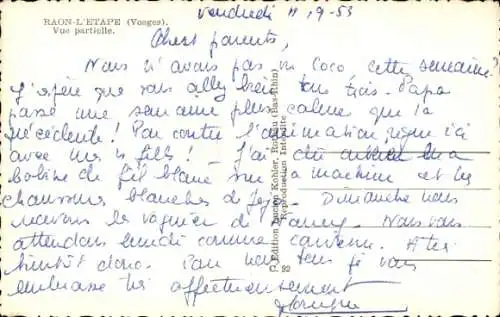 RAON-L'ETAPE (Vosges).
Vue partielle.
Vendredi 11 9-53
Chers parents,
Nous n'avons pas vu Coco cette semaine?
J'espère que vous allez bien tous trois. Papa
passé une semaine plus calme que la
précédente! Par contre l'animation règne ici
avec mes fils! J'ai dû la
bobine de fil blanc sur la machine et les
chaussons blancs de
Dimanche nous
recevons le de Nancy. Nous vous
attendons lundi comme convenu. A très
bientôt donc. Pour nous tous je vous
embrasse très affectueusement
© Edition Lucien Kohler, Rothau (Bas-Rhin)
Reproduction Interdite
92